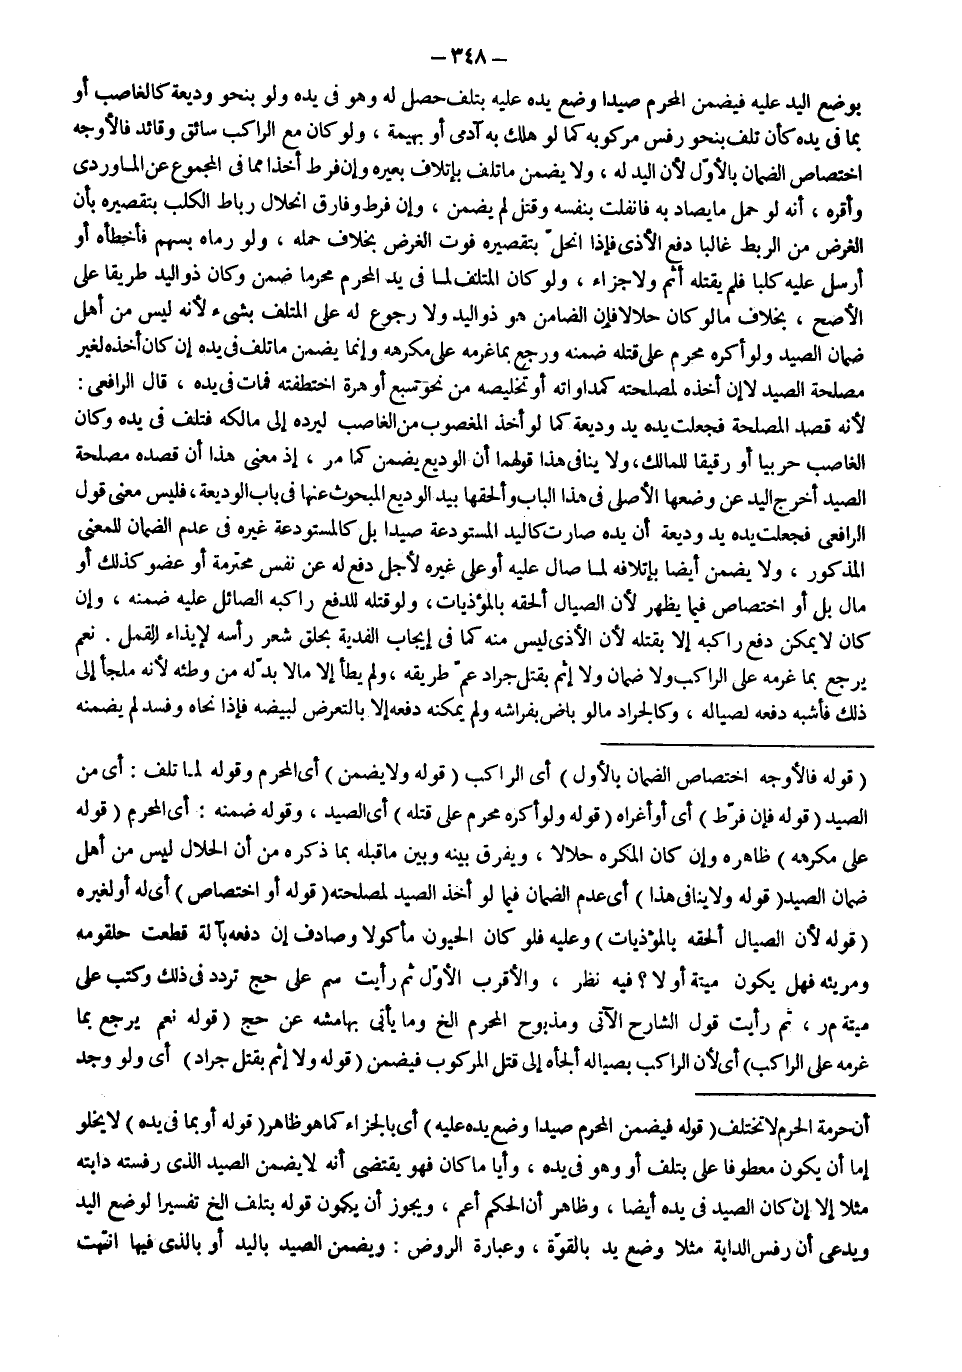 – ٣٤٨ –
بوضع اليد عليه فيضمن المحرم صيدا وضع يده عليه بتلف حصل له وهو فى يده ولو بنحو وديعة كالغاصب أو
بما فى يده كأن تلف بنحو رفس مركوبه كما لو هلك به آدمى أو بهيمة ، ولو كان مع الراكب سائق وقائد فالأوجه
اختصاص الضمان بالأوّل لأن اليد له ، ولا يضمن ماتلف بإتلاف بعيره وإن فرط أخذا مما فى المجموع عن الماوردى
وأقره ، أنه لو حمل مايصاد به فانفلت بنفسه وقتل لم يضمن ، وإن فرط وفارق انحلال رباط الكلب بتقصيره بأن
الغرض من الربط غالبا دفع الأذى فإذا انحلّ بتقصيره فوت الغرض بخلاف حمله ، ولو رماه بسهم فأخطأه أو
أرسل عليه كلبا فلم يقتله أثم ولاجزاء ، ولو كان المتلف لما فى يد المحرم محرما ضمن وكان ذو اليد طريقا على
الأصح ، بخلاف مالو كان حلالا فإن الضامن هو ذو اليد ولا رجوع له على المتلف بشىء لأنه ليس من أهل
ضمان الصيد ولو أكره محرم على قتله ضمنه ورجع بماغرمه على مكرهه وإنما يضمن ماتلف فى يده إن كان أخذه لغير
مصلحة الصيد لاإن أخذه لمصلحته كمداواته أو تخليصه من نحو سبع أو هرة اختطفته فمات فى يده ، قال الرافعى :
لأنه قصد المصلحة فجعلت يده يد وديعة كما لو أخذ المغصوب من الغاصب ليرده إلى مالكه فتلف فى يده وكان
الغاصب حربيا أو رقيقا للمالك، ولا ينافى هذا قولهما أن الوديع يضمن كما مر ، إذ معنى هذا أن قصده مصلحة
الصيد أخرج اليد عن وضعها الأصلى فى هذا الباب وألحقها بيد الوديع المبحوث عنها فى باب الوديعة، فليس معنى قول
الرافعى فجعلت يده يد وديعة أن يده صارت كاليد المستودعة صيدا بل كالمستودعة غيره فى عدم الضمان للمعنى
المذكور ، ولا يضمن أيضا بإتلافه لما صال عليه أو على غيره لأجل دفع له عن نفس محترمة أو عضو كذلك أو
مال بل أو اختصاص فيما يظهر لأن الصيال ألحقه بالمؤذيات، ولو قتله للدفع راكبه الصائل عليه ضمنه ، وإن
كان لايمكن دفع راكبه إلا بقتله لأن الأذى ليس منه كما فى إيجاب الفدية بحلق شعر رأسه لإيذاء القمل . نعم
يرجع بما غرمه على الراكب ولا ضمان ولا إثم بقتل جراد عمّ طريقه ، ولم يطأ إلا مالا بدّ له من وطئه لأنه ملجأ إلى
ذلك فأشبه دفعه لصياله ، وكالجراد مالو باض بفراشه ولم يمكنه دفعه إلا بالتعرض لبيضه فإذا نحاه وفسد لم يضمنه
( قوله فالأوجه اختصاص الضمان بالأول ) أى الراكب ( قوله ولايضمن ) أى المحرم وقوله لما تلف : أى من
الصيد ( قوله فإن فرّط ) أى أو أغراه ( قوله ولو أكره محرم على قتله ) أى الصيد ، وقوله ضمنه : أى المحرم ( قوله
على مكرهه ) ظاهره وإن كان المكره حلالا ، ويفرق بينه وبين ماقبله بما ذكره من أن الحلال ليس من أهل
ضمان الصيد ( قوله ولاينافى هذا ) أى عدم الضمان فيما لو أخذ الصيد لمصلحته ( قوله أو اختصاص ) أى له أو لغيره
( قوله لأن الصيال ألحقه بالمؤذيات ) وعليه فلو كان الحيون مأكولا وصادف إن دفعه بآلة قطعت حلقومه
ومريئه فهل يكون ميتة أو لا ؟ فيه نظر ، والأقرب الأوّل ثم رأيت سم على حج تردد فى ذلك وكتب على
ميتة م ر ، ثم رأيت قول الشارح الآتى ومذبوح المحرم الخ وما يأتى بهامشه عن حج ( قوله نعم يرجع بما
غرمه على الراكب ) أى لأن الراكب بصياله ألجأه إلى قتل المركوب فيضمن ( قوله ولا إثم بقتل جراد ) أى ولو وجد
أن حرمة الحرم لاتختلف ( قوله فيضمن المحرم صيدا وضع يده عليه ) أى بالجزاء كما هو ظاهر ( قوله أو بما فى يده ) لايخلو
إما أن يكون معطوفا على بتلف أو وهو فى يده ، وأيا ماكان فهو يقتضى أنه لايضمن الصيد الذى رفسته دابته
مثلا إلا إن كان الصيد فى يده أيضا ، وظاهر أن الحكم أعم ، ويجوز أن يكون قوله بتلف الخ تفسيرا لوضع اليد
ويدعى أن رفس الدابة مثلا وضع يد بالقوّة ، وعبارة الروض : ويضمن الصيد باليد أو بالذى فيها انتهت